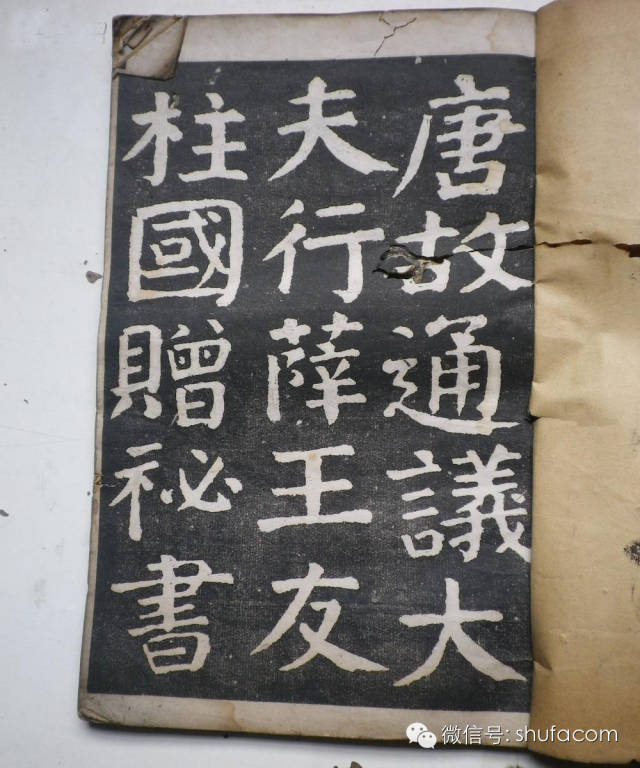 唐故通議大
夫行薛王友
柱國贈祕書
微信号: shufacom